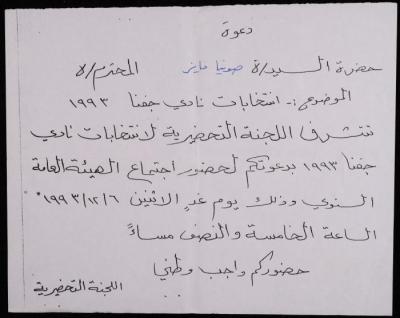 دعوة
حضرة السيد/ة صونيا ماينر المحترم/ة
الموضوع :- انتخابات نادي جفنا ١٩٩٣
تتشرف اللجنة التحضيرية لانتخابات نادي
جفنا ١٩٩٣ بدعوتكم لحضور اجتماع الهيئة العامة
السنوي وذلك يوم غدٍ الاثنين ١٩٩٣/١٢/٦
الساعة الخامسة والنصف مساءً
حضوركم واجب وطني
اللجنة التحضيرية